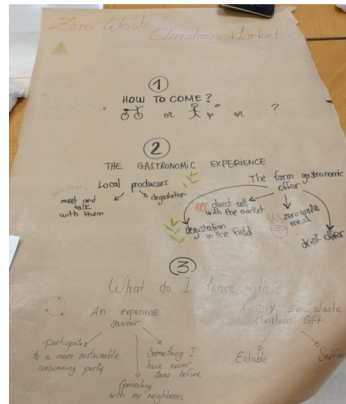 Zero Waste
Christmas Market
1
HOW TO COME?
or or ?
2
THE GASTRONOMIC EXPERIENCE
Local producers
meet and
talk
with them
degustation
The farm gastronomic
offer
direct sell
with the market
degustation
in the field
zero waste
meal
drink offer
3
What do I leave with?
An experience
Participated
to a more sustainable
consuming party
Something I
have never
done before
Connecting
with my neighbors
A DIY Zero Waste
Christmas Gift
Eatable